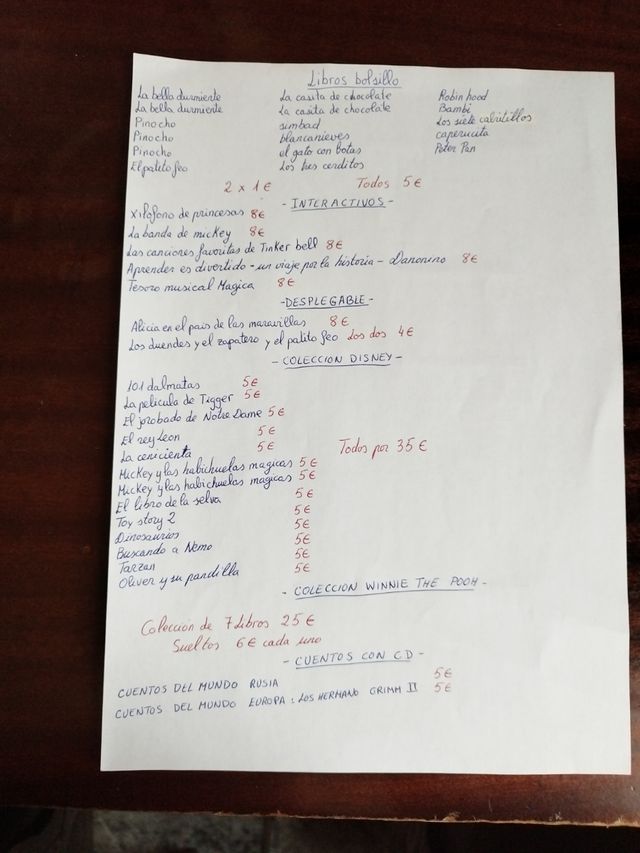 Libros bolsillo
La bella durmiente La casita de chocolate Robin hood
La bella durmiente La casita de chocolate Bambi
Pinocho simbad Los siete cabritillos
Pinocho blancanieves caperucita
Pinocho el gato con botas Peter Pan
El patito feo Los tres cerditos
2 x 1 € Todos 5 €
- INTERACTIVOS -
Xilofono de princesas 8€
La banda de mickey 8€
Las canciones favoritas de Tinker bell 8€
Aprender es divertido - un viaje por la historia - Danonino 8€
Tesoro musical Magica 8€
- DESPLEGABLE -
Alicia en el pais de las maravillas 8€
Los duendes y el zapatero y el patito feo Los dos 4€
- COLECCION DISNEY -
101 dalmatas 5€
La pelicula de Tigger 5€
El jorobado de Notre Dame 5€
El rey Leon 5€
La cenicienta 5€ Todos por 35€
Mickey y las habichuelas magicas 5€
Mickey y las habichuelas magicas 5€
El libro de la selva 5€
Toy story 2 5€
Dinosaurios 5€
Buscando a Nemo 5€
Tarzan 5€
Oliver y su pandilla 5€
- COLECCION WINNIE THE POOH -
Coleccion de 7 Libros 25€
Sueltos 6€ cada uno
- CUENTOS CON CD -
CUENTOS DEL MUNDO RUSIA 5€
CUENTOS DEL MUNDO EUROPA : LOS HERMANO GRIMM II 5€